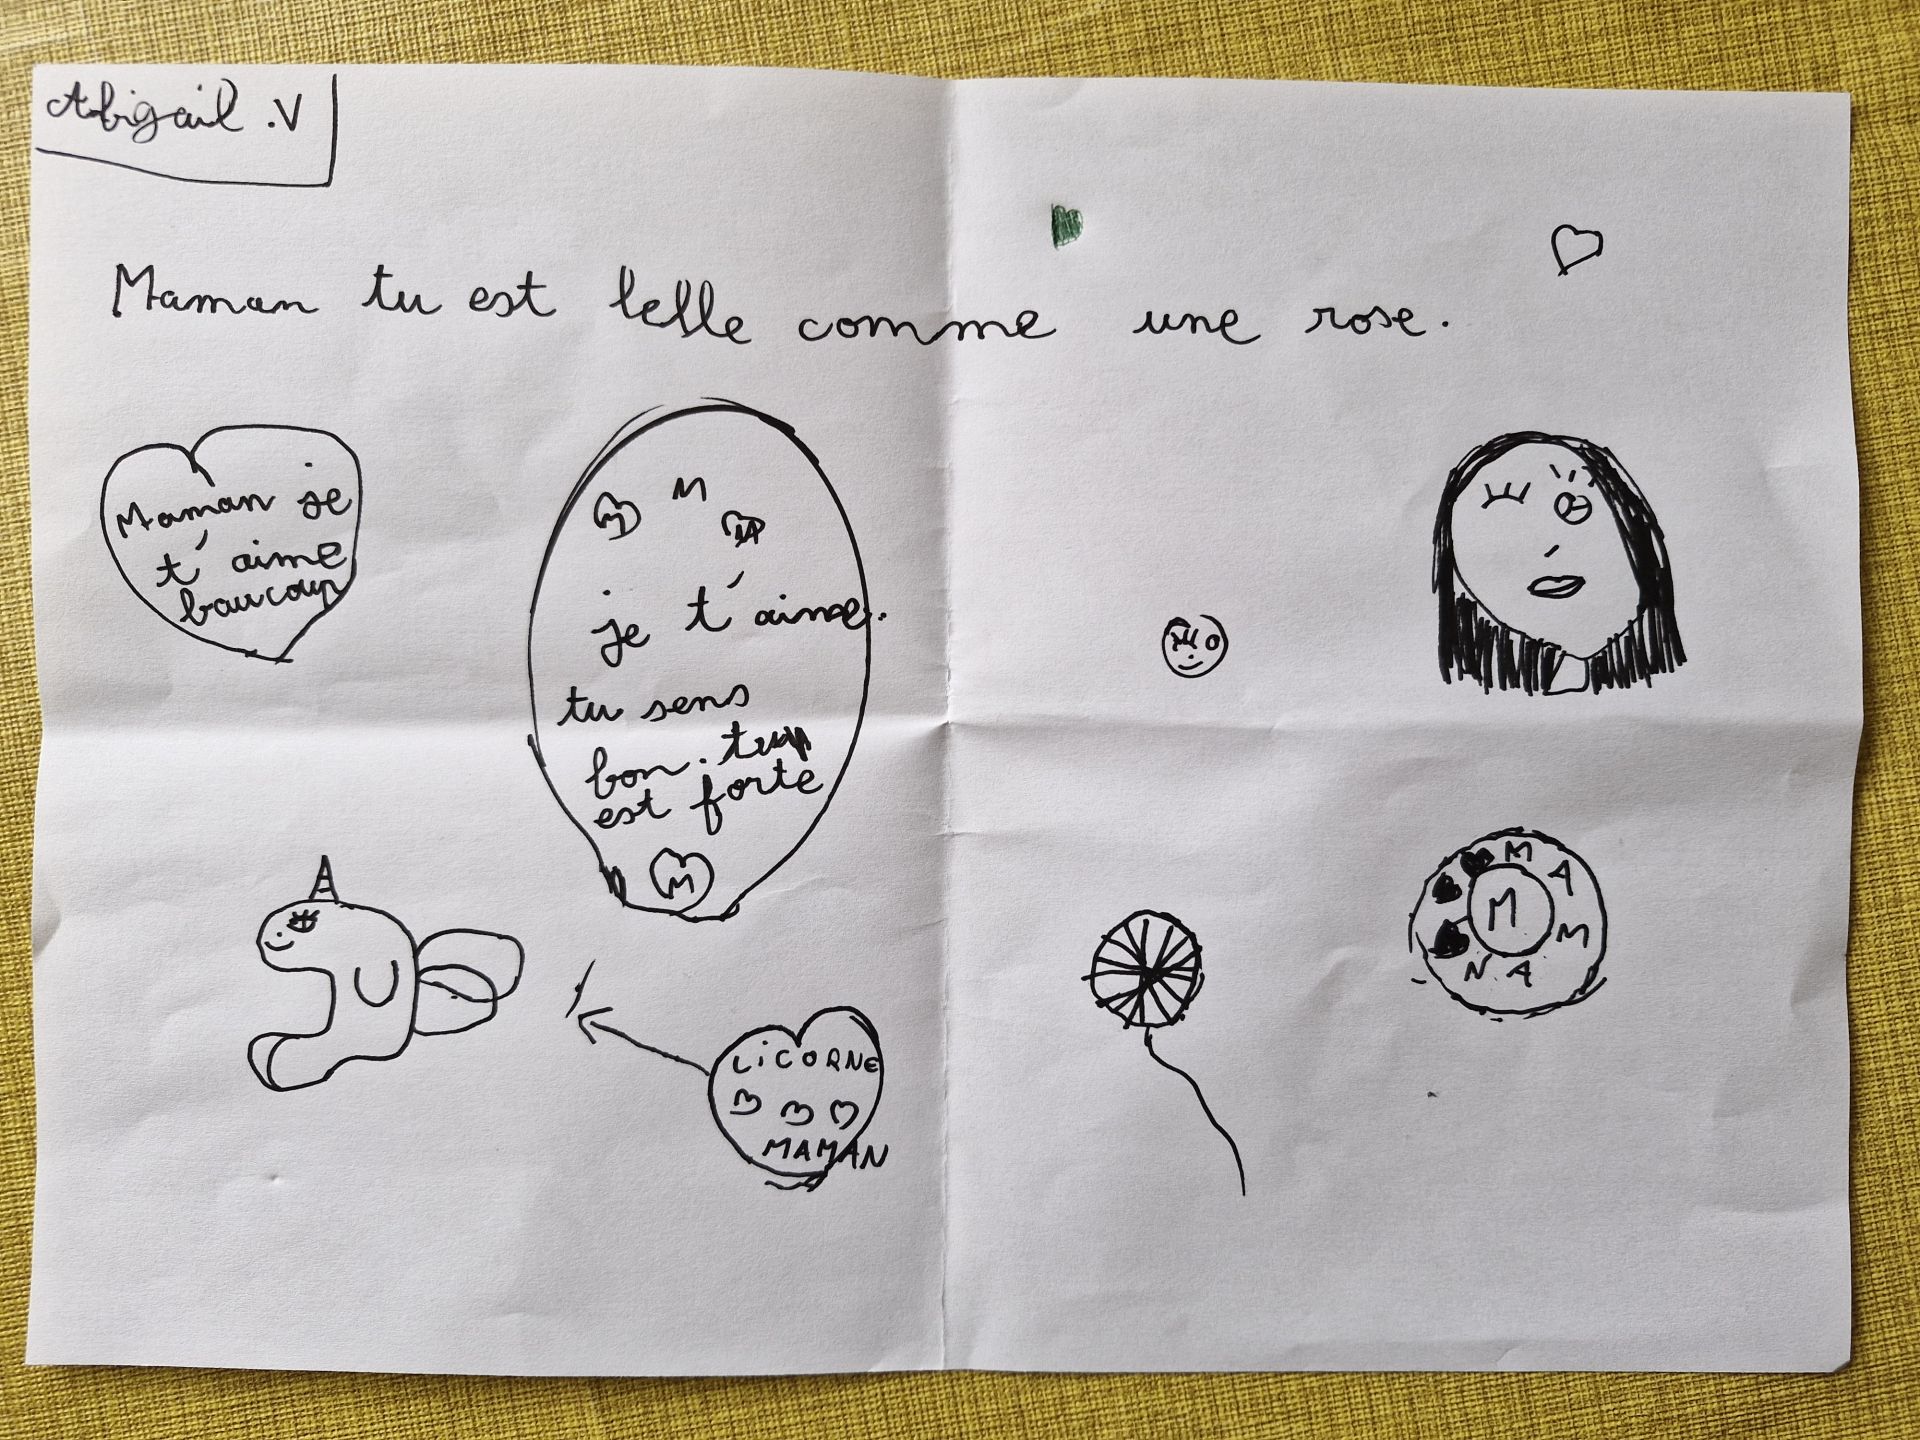 Abigail .V
Maman tu est belle comme une rose.
Maman je
t'aime
baucoup
M
M
M
je t'aime.
tu sens
bon. tu
est forte
M
LiCORNE
MAMAN
MAMAN
M